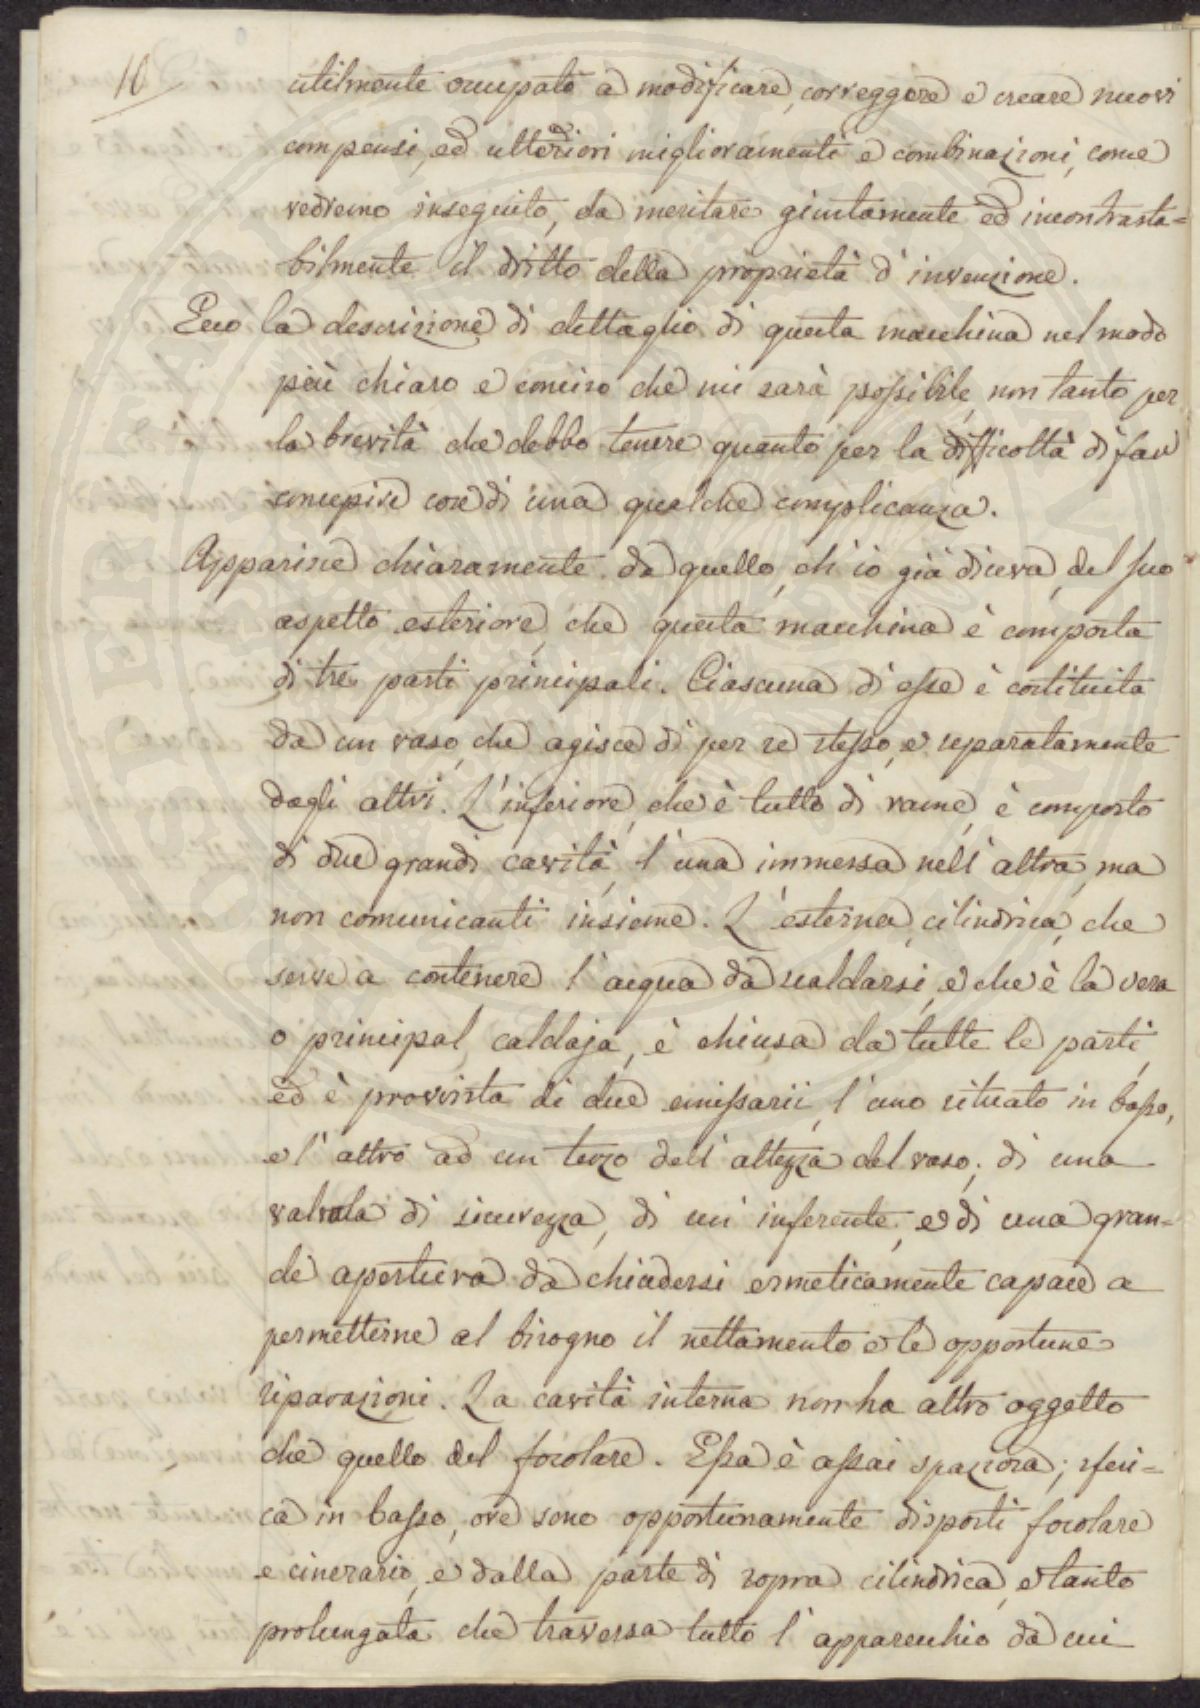 10
utilmente occupato a modificare, correggere e creare nuovi
compensi, ed ulteriori miglioramenti e combinazioni, come
vedremo inseguito, da meritare giustamente ed incontrasta=
bilmente il dritto della proprietà d'invenzione.
Ecco la descrizione di dettaglio di questa macchina nel modo
più chiaro e conciso che mi sarà possibile, non tanto per
la brevità che debbo tenere quanto per la difficoltà di far
concepire cose di una qualche complicanza.
Apparisce chiaramente da quello, ch'io già diceva, del suo
aspetto esteriore, che questa macchina è composta
di tre parti principali. Ciascuna di esse è costituita
da un vaso, che agisce di per se stesso, e separatamente
dagli altri. L'inferiore, che è tutto di rame, è composto
di due grandi cavità, l'una immersa nell'altra, ma
non comunicanti insieme. L'esterna, cilindrica, che
serve a contenere l'acqua da scaldarsi, e che è la vera
o principal caldaja, è chiusa da tutte le parti,
ed è provvista di due emissarii, l'uno situato in basso,
e l'altro ad un terzo dell'altezza del vaso; di una
valvola di sicurezza, di un inferente, e di una gran=
de apertura da chiudersi ermeticamente capace a
permetterne al bisogno il nettamento e le opportune
riparazioni. La cavità interna non ha altro oggetto
che quello del focolare. Essa è assai spaziosa; sferi=
ca in basso, ove sono opportunamente disposti focolare
e cinerario, e dalla parte di sopra cilindrica, e tanto
prolungata che traversa tutto l'apparecchio da cui